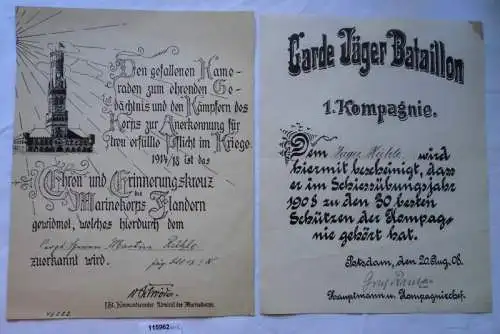 Den gefallenen Kame-
raden zum ehrenden Ge-
dächtnis und den Kämpfern des
Korps zur Anerkennung für
treu erfüllte Pflicht im Kriege
1914/18 ist das
Ehren und Erinnerungskreuz
des
Marinekorps Flandern
gewidmet, welches hierdurch dem
Martin
zuerkannt wird.
Garde Jäger Bataillon
1. Kompagnie.
Dem Jäger wird
hiermit bescheinigt, dass
er im Schiessübungsjahr
1908 zu den 30 besten
Schützen der Kompag-
nie gehört hat.
Potsdam, den 20. Aug. 08.
Hauptmann u. Kompagniechef.
115962